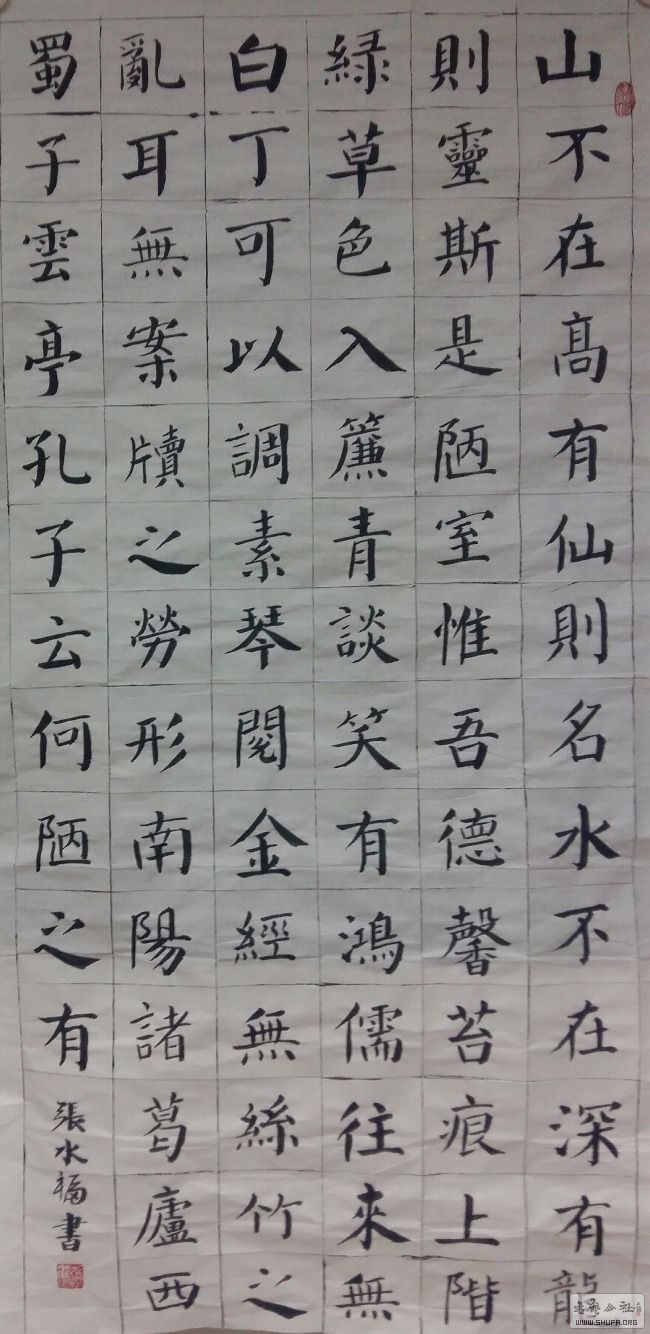 山不在高有仙則名水不在深有龍
則靈斯是陋室惟吾德馨苔痕上階
緑草色入簾青談笑有鴻儒往來無
白丁可以調素琴閱金經無絲竹之
亂耳無案牘之勞形南陽諸葛廬西
蜀子雲亭孔子云何陋之有
張水福書
書藝公社
WWW.SHUFA.ORG